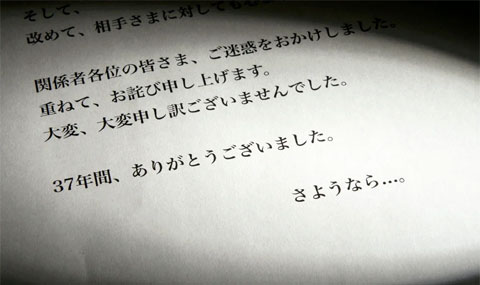 そして、
改めて、相手さまに対しても
関係者各位の皆さま、ご迷惑をおかけしました。
重ねて、お詫び申し上げます。
大変、大変申し訳ございませんでした。
37年間、ありがとうございました。
さようなら…。